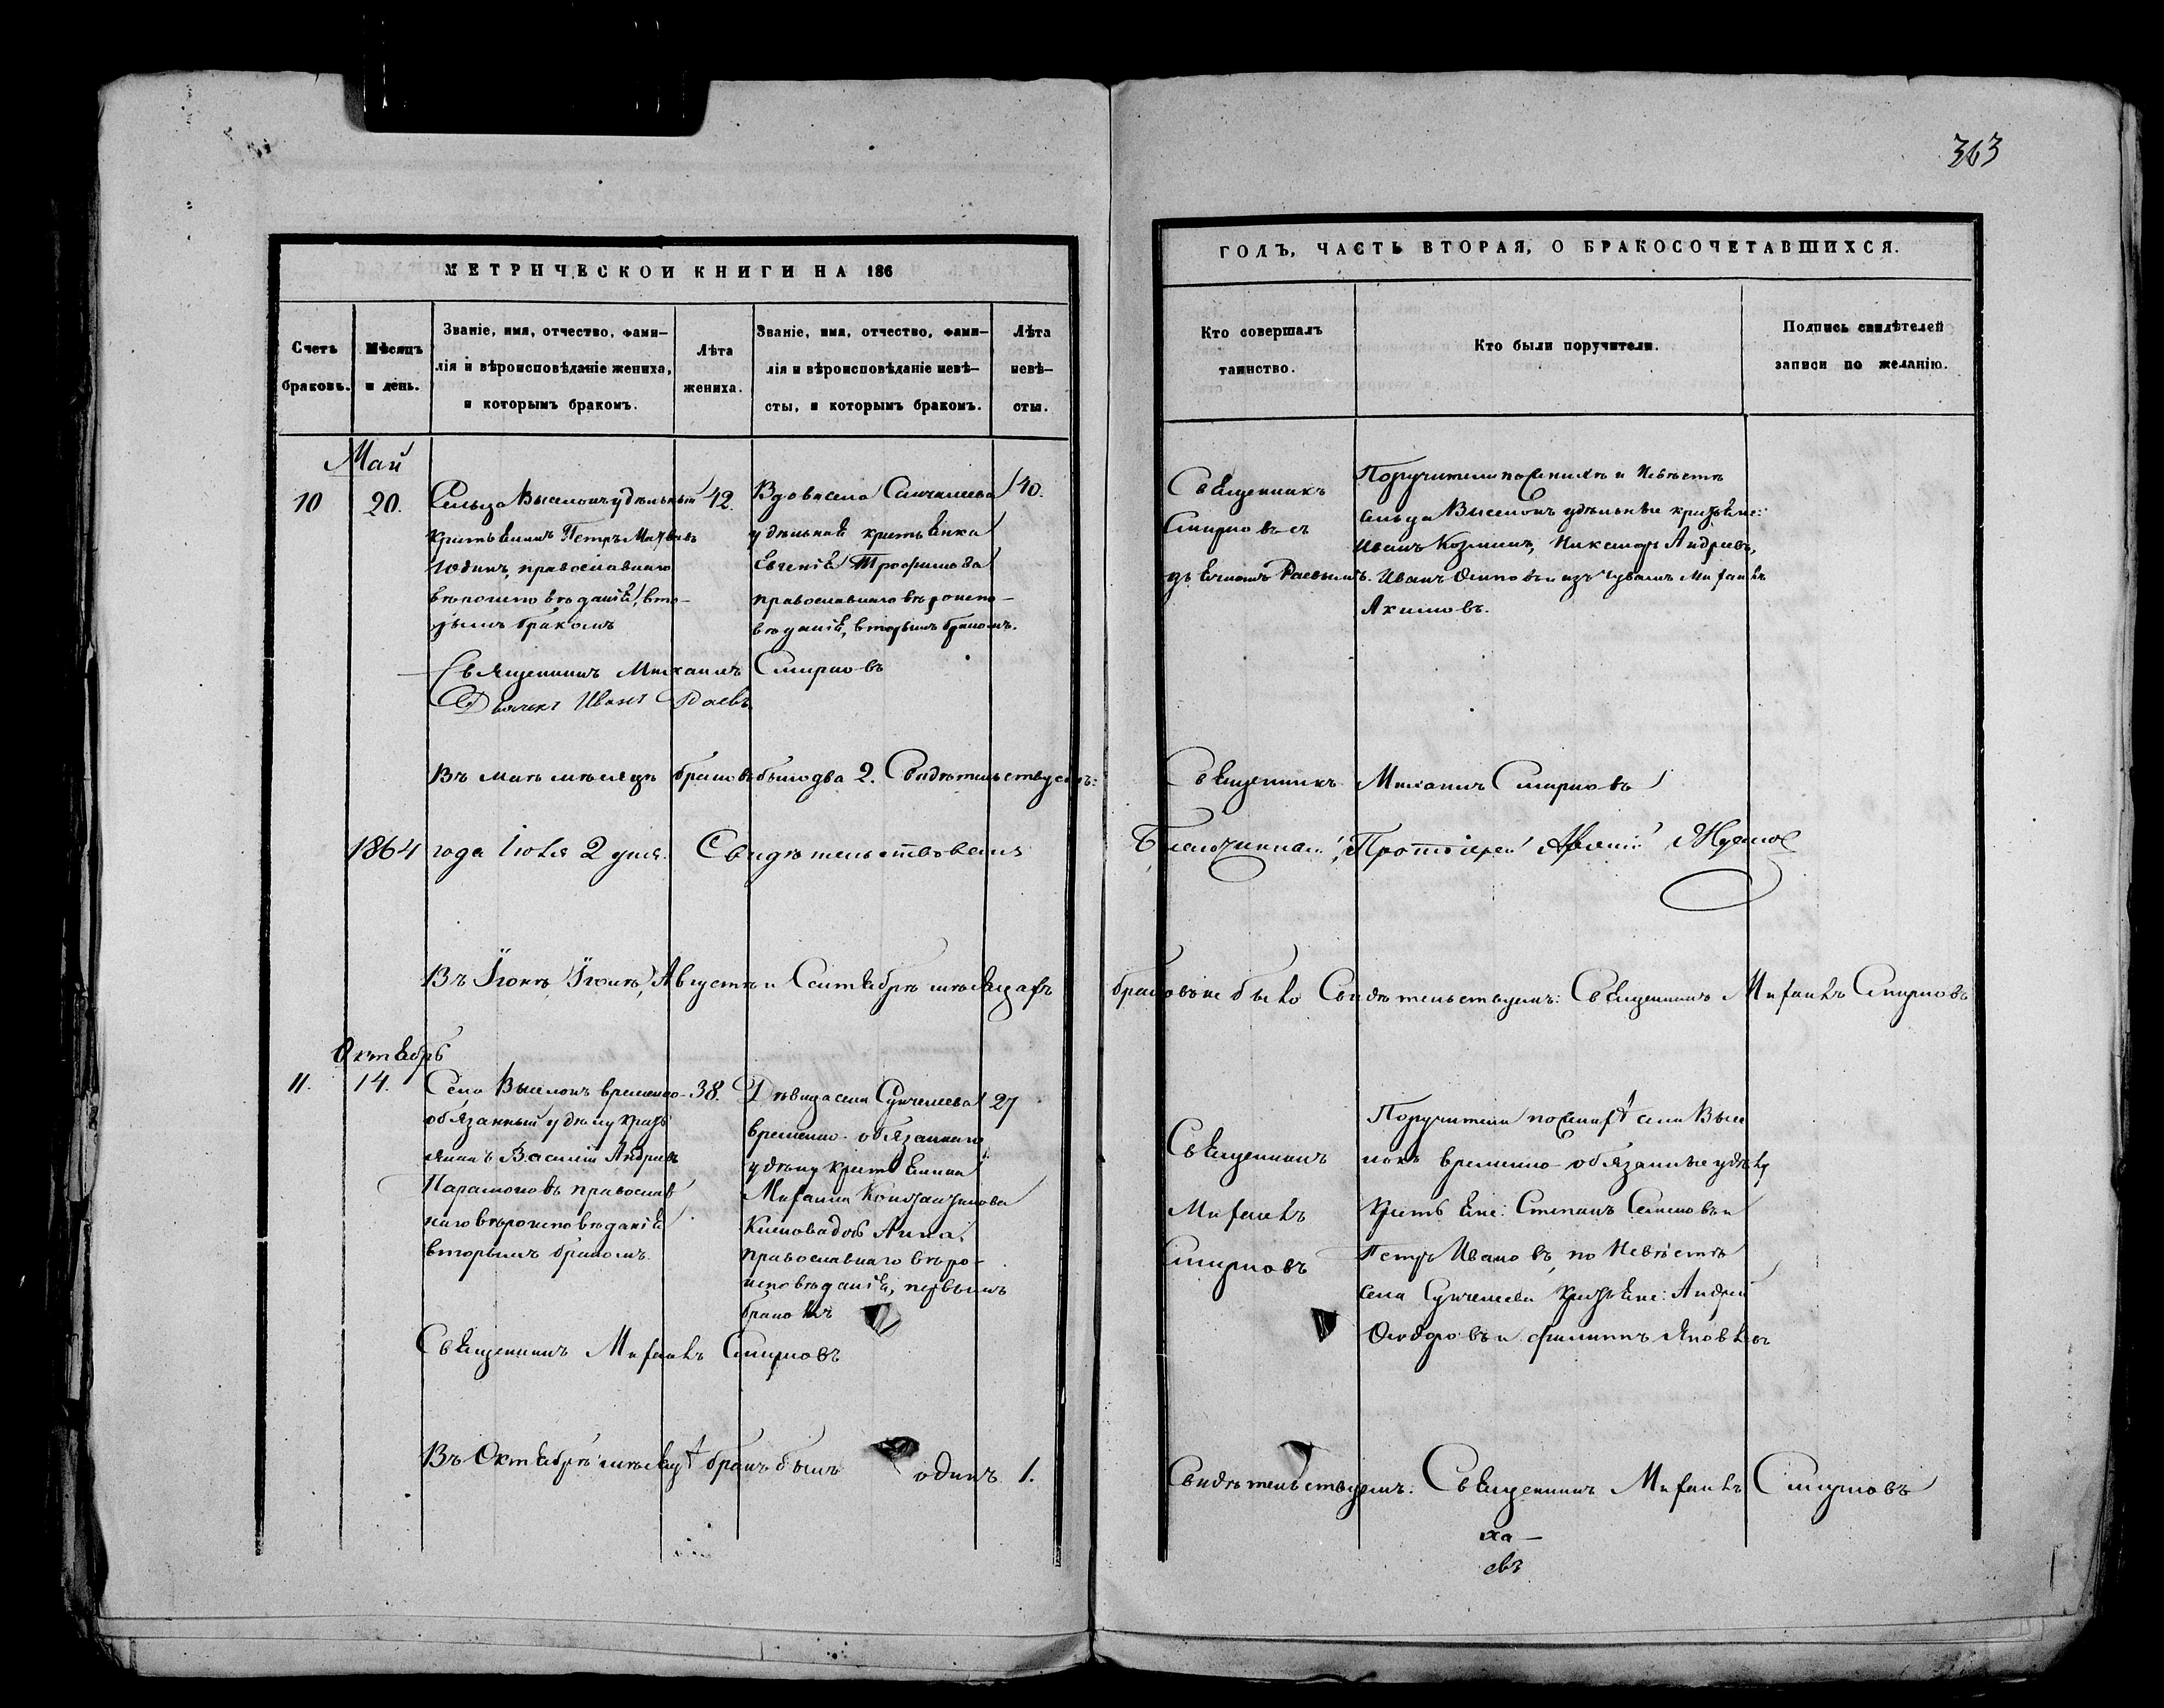 363
МЕТРИЧЕСКОЙ КНИГИ НА 186
Счетъ браковъ.
Мѣсяцъ и день.
Званіе, имя, отчество, фами-
лія и вѣроисповѣданіе жениха,
и которымъ бракомъ.
Лѣта жениха.
Званіе, имя, отчество, фами-
лія и вѣроисповѣданіе невѣ-
сты, и которымъ бракомъ.
Лѣта невѣ-
сты.
Май
10
20.
Сельца Выселокъ удѣльный
крестьянинъ Петръ
православнаго
вѣроисповѣданія, вто-
рымъ бракомъ
42.
Вдова села
удѣльная крестьянка
Евгенія Трофимова
православнаго вѣроиспо-
вѣданія, вторымъ бракомъ.
40.
Священникъ Михаилъ Смирновъ
Дьячекъ Иванъ Раевъ
Въ маѣ мѣсяцѣ браковъ было два 2. Свидѣтельствуемъ:
1864 года Іюля 2 дня. Свидѣтельствовалъ
Въ Іюнѣ, Іюлѣ, Августѣ и Сентябрѣ мѣсяцахъ
Октябрь
11.
14.
Села Выселокъ временно-
обязанный удѣлу крест
янинъ Василій Андреевъ
Парамоновъ православ
наго вѣроисповѣданія
вторымъ бракомъ.
38.
Дѣвица села Сунчелеева
временно-обязаннаго
удѣлу крестьянина
Михаила Константинова
дочь Анна,
православнаго вѣро-
исповѣданія, первымъ
бракомъ
27
Священникъ Михаилъ Смирновъ
Въ Октябрѣ мѣсяцѣ бракъ былъ одинъ 1.
ГОДЪ, ЧАСТЬ ВТОРАЯ, О БРАКОСОЧЕТАВШИХСЯ.
Кто совершалъ
таинство.
Кто были поручители.
Подпись свидѣтелей
записи по желанію.
Священникъ
Смирновъ съ
дьячкомъ Раевымъ.
Поручители по женихѣ и невѣстѣ
сельца Выселокъ удѣльные крестьяне:
Иванъ Козминъ, Никаноръ Андреевъ,
Иванъ Осиповъ и изъ чувашъ Михаилъ
Акимовъ.
Священникъ Михаилъ Смирновъ
Благочинный, Протоіерей
браковъ не было Свидѣтельствуемъ: Священникъ Михаилъ Смирновъ
Священникъ
Михаилъ
Смирновъ
Поручители по женихѣ села Высе
локъ временно-обязанные удѣлу
крестьяне: Степанъ Семеновъ и
Петръ Ивановъ, по невѣстѣ
села Сунчелеева крестьяне: Андрей
Ѳедоровъ и Филиппъ Яковлевъ
Свидѣтельствуемъ: Священникъ Михаилъ Смирновъ
ха-
евъ